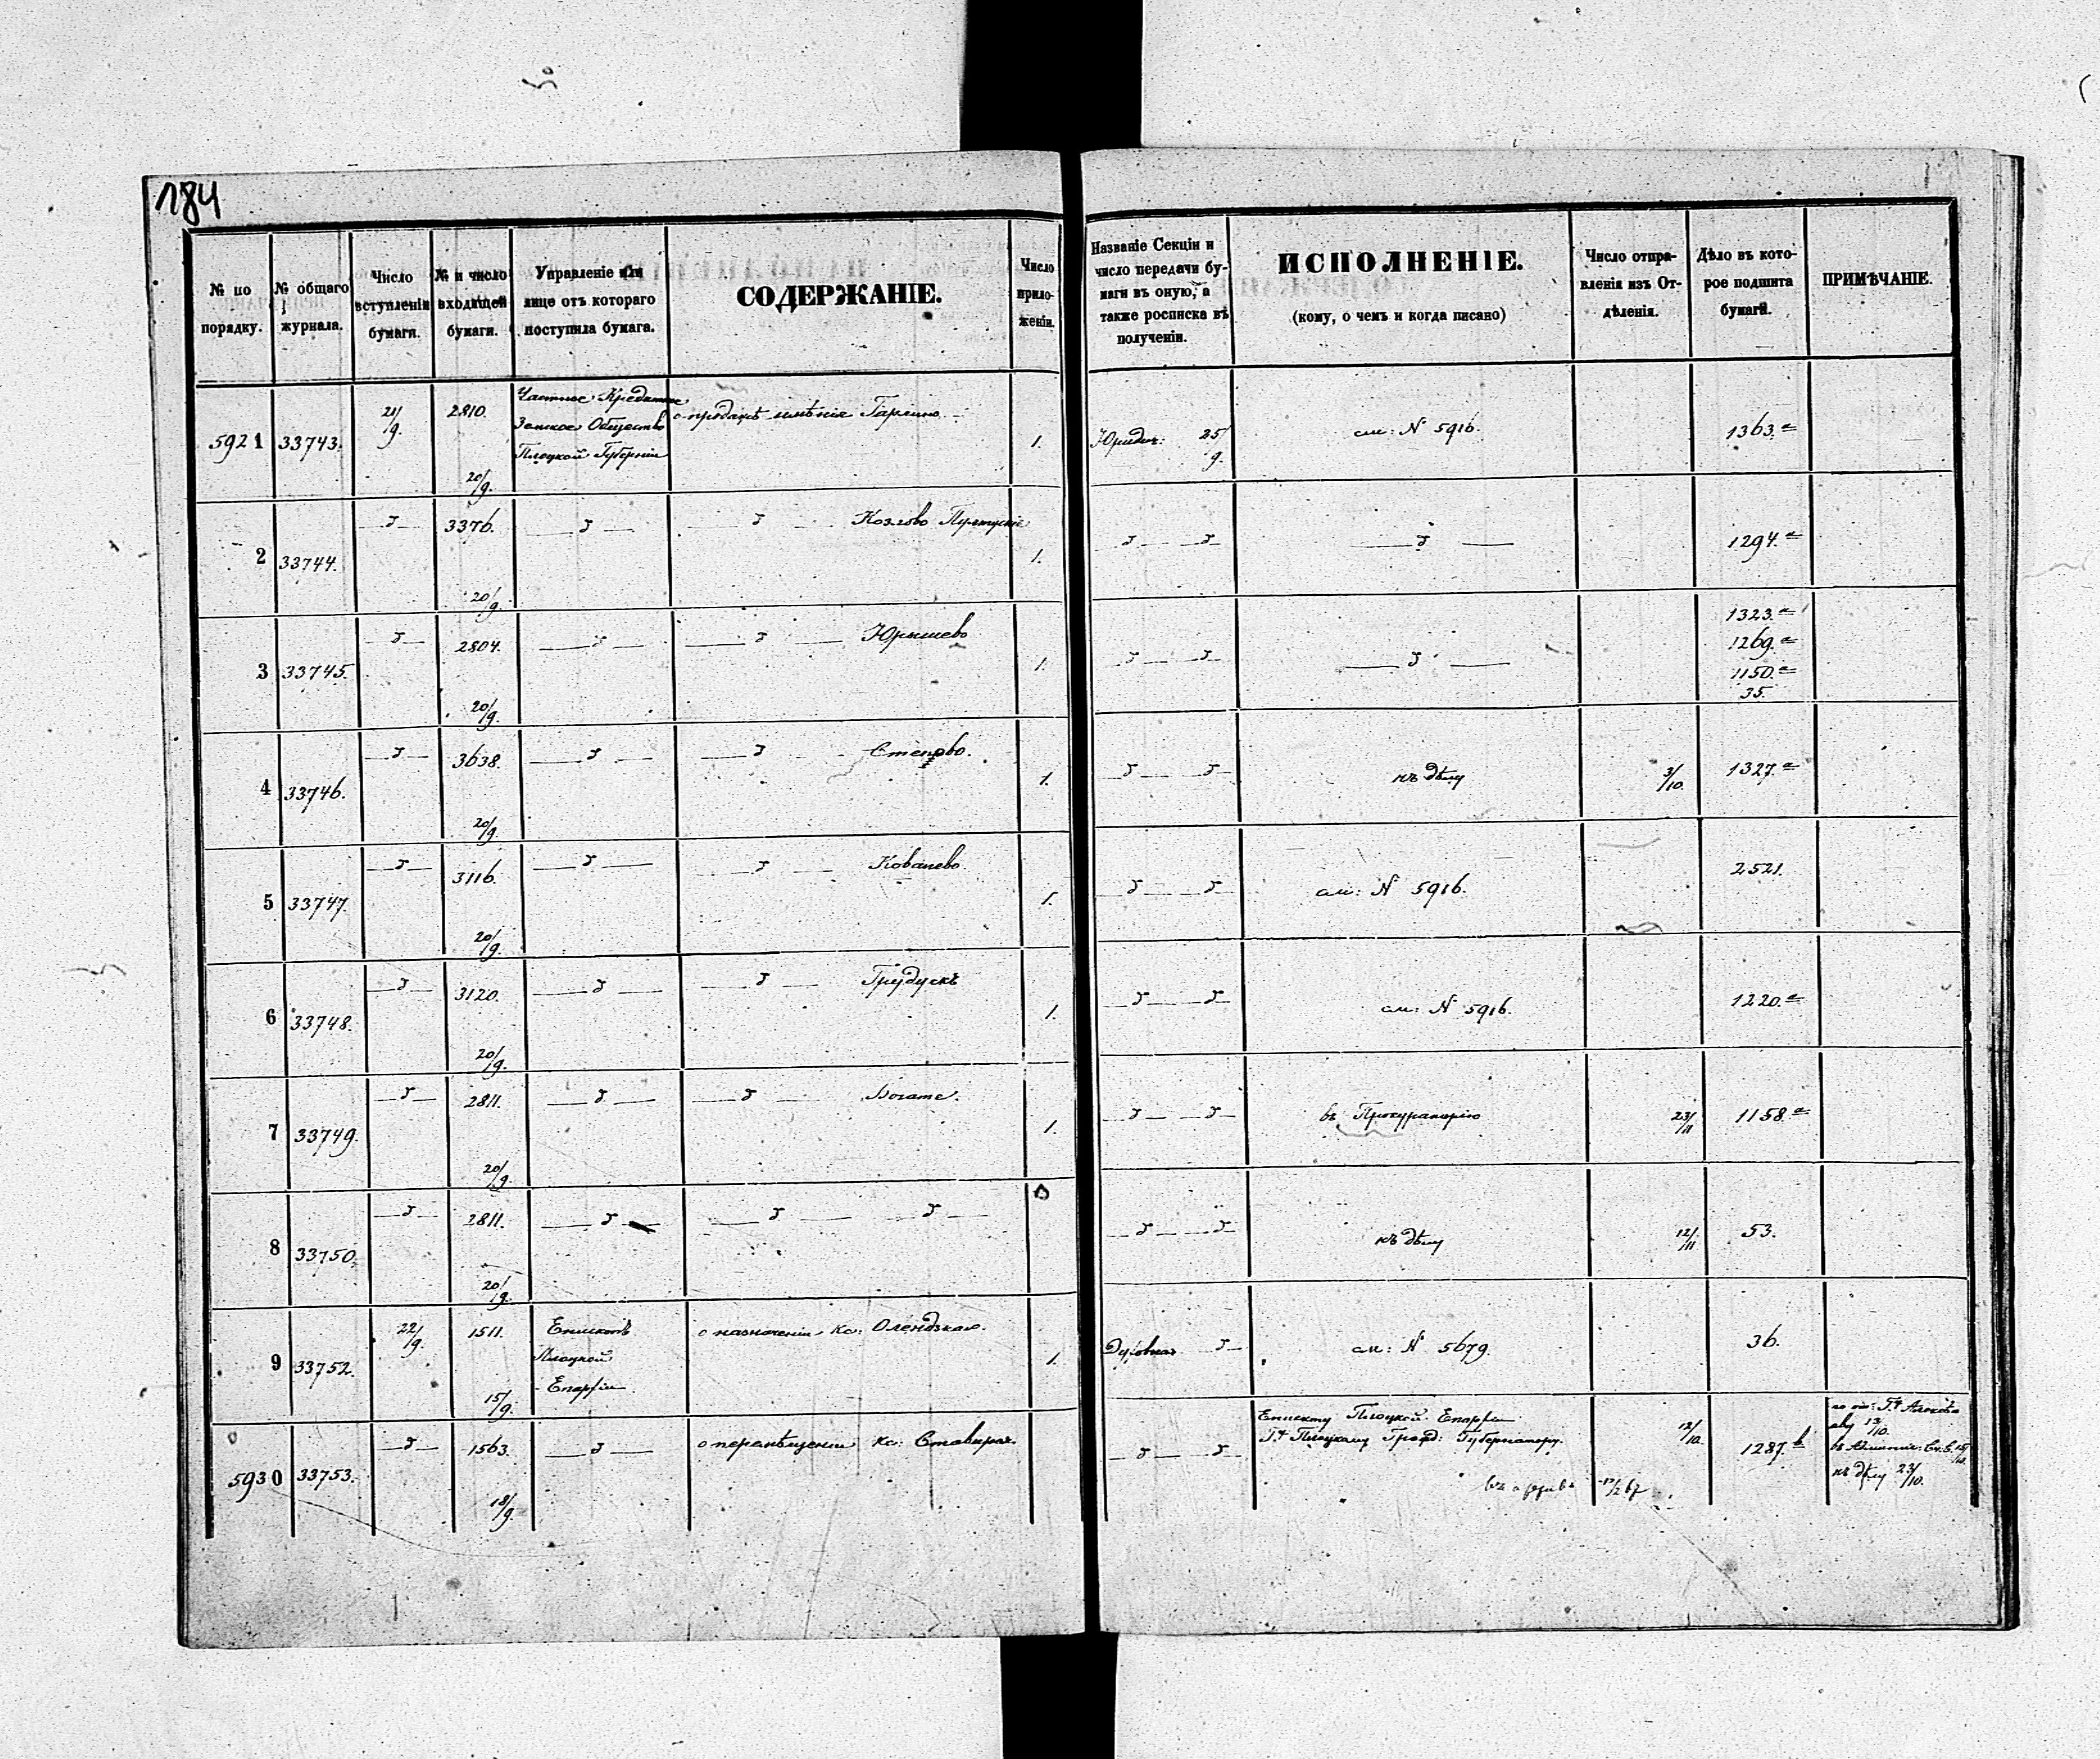 184
№ по порядку.
№ общаго журнала.
Число вступленія бумаги.
№ и число входящей бумаги.
Управленіе или лице отъ котораго поступила бумага.
СОДЕРЖАНІЕ.
Число приложеній.
Названіе Секціи и число передачи бумаги въ оную, а также росписка въ полученіи.
ИСПОЛНЕНІЕ.
(кому, о чемъ и когда писано)
Число отправленія изъ Отдѣленія.
Дѣло въ которое подшита бумага.
ПРИМѢЧАНІЕ.
5921 33743. 21/9. 2810. 20/9.
Частное Кредитное
Земское Общество
Плоцкой Губерніи
о продажѣ имѣнія 1.
Юридич: 25/9. см: № 5916. 1363.а
2 33744. —д— 3376. 20/9. —д— —д— Козлово 1.
—д— —д— —д— 1294.а
3 33745. —д— 2804. 20/9. —д— —д— Юрышево 1.
—д— —д— —д— 1323.а
1269.а
1150.а
35.
4 33746. —д— 3638. 20/9. —д— —д— 1.
—д— —д— къ дѣлу 3/10. 1327.а
5 33747. —д— 3116. 20/9. —д— —д— Ковалево 1.
—д— —д— см: № 5916. 2521.
6 33748. —д— 3120. 20/9. —д— —д— Грудускъ 1.
—д— —д— см: № 5916. 1220.а
7 33749. —д— 2811. 20/9. —д— —д— Богате. 1.
—д— —д— въ Прокураторію 23/11 1158.а
8 33750. —д— 2811. 20/9. —д— —д— —д—
—д— —д— къ дѣлу 12/11 53.
9 33752. 22/9. 1511. 15/9.
Епископъ
Плоцкой
Епархіи
о назначеніи Кс: Олендзкаго. 1.
Духовная —д— см: № 5679. 36.
5930 33753. —д— 1563. 18/9. —д— о перемѣщеніи Кс:
—д— —д— Епископу Плоцкой Епархіи
Г. Плоцкому Гражд: Губернатору.
12/10. 1287.b
13/10.
къ дѣлу 23/10.